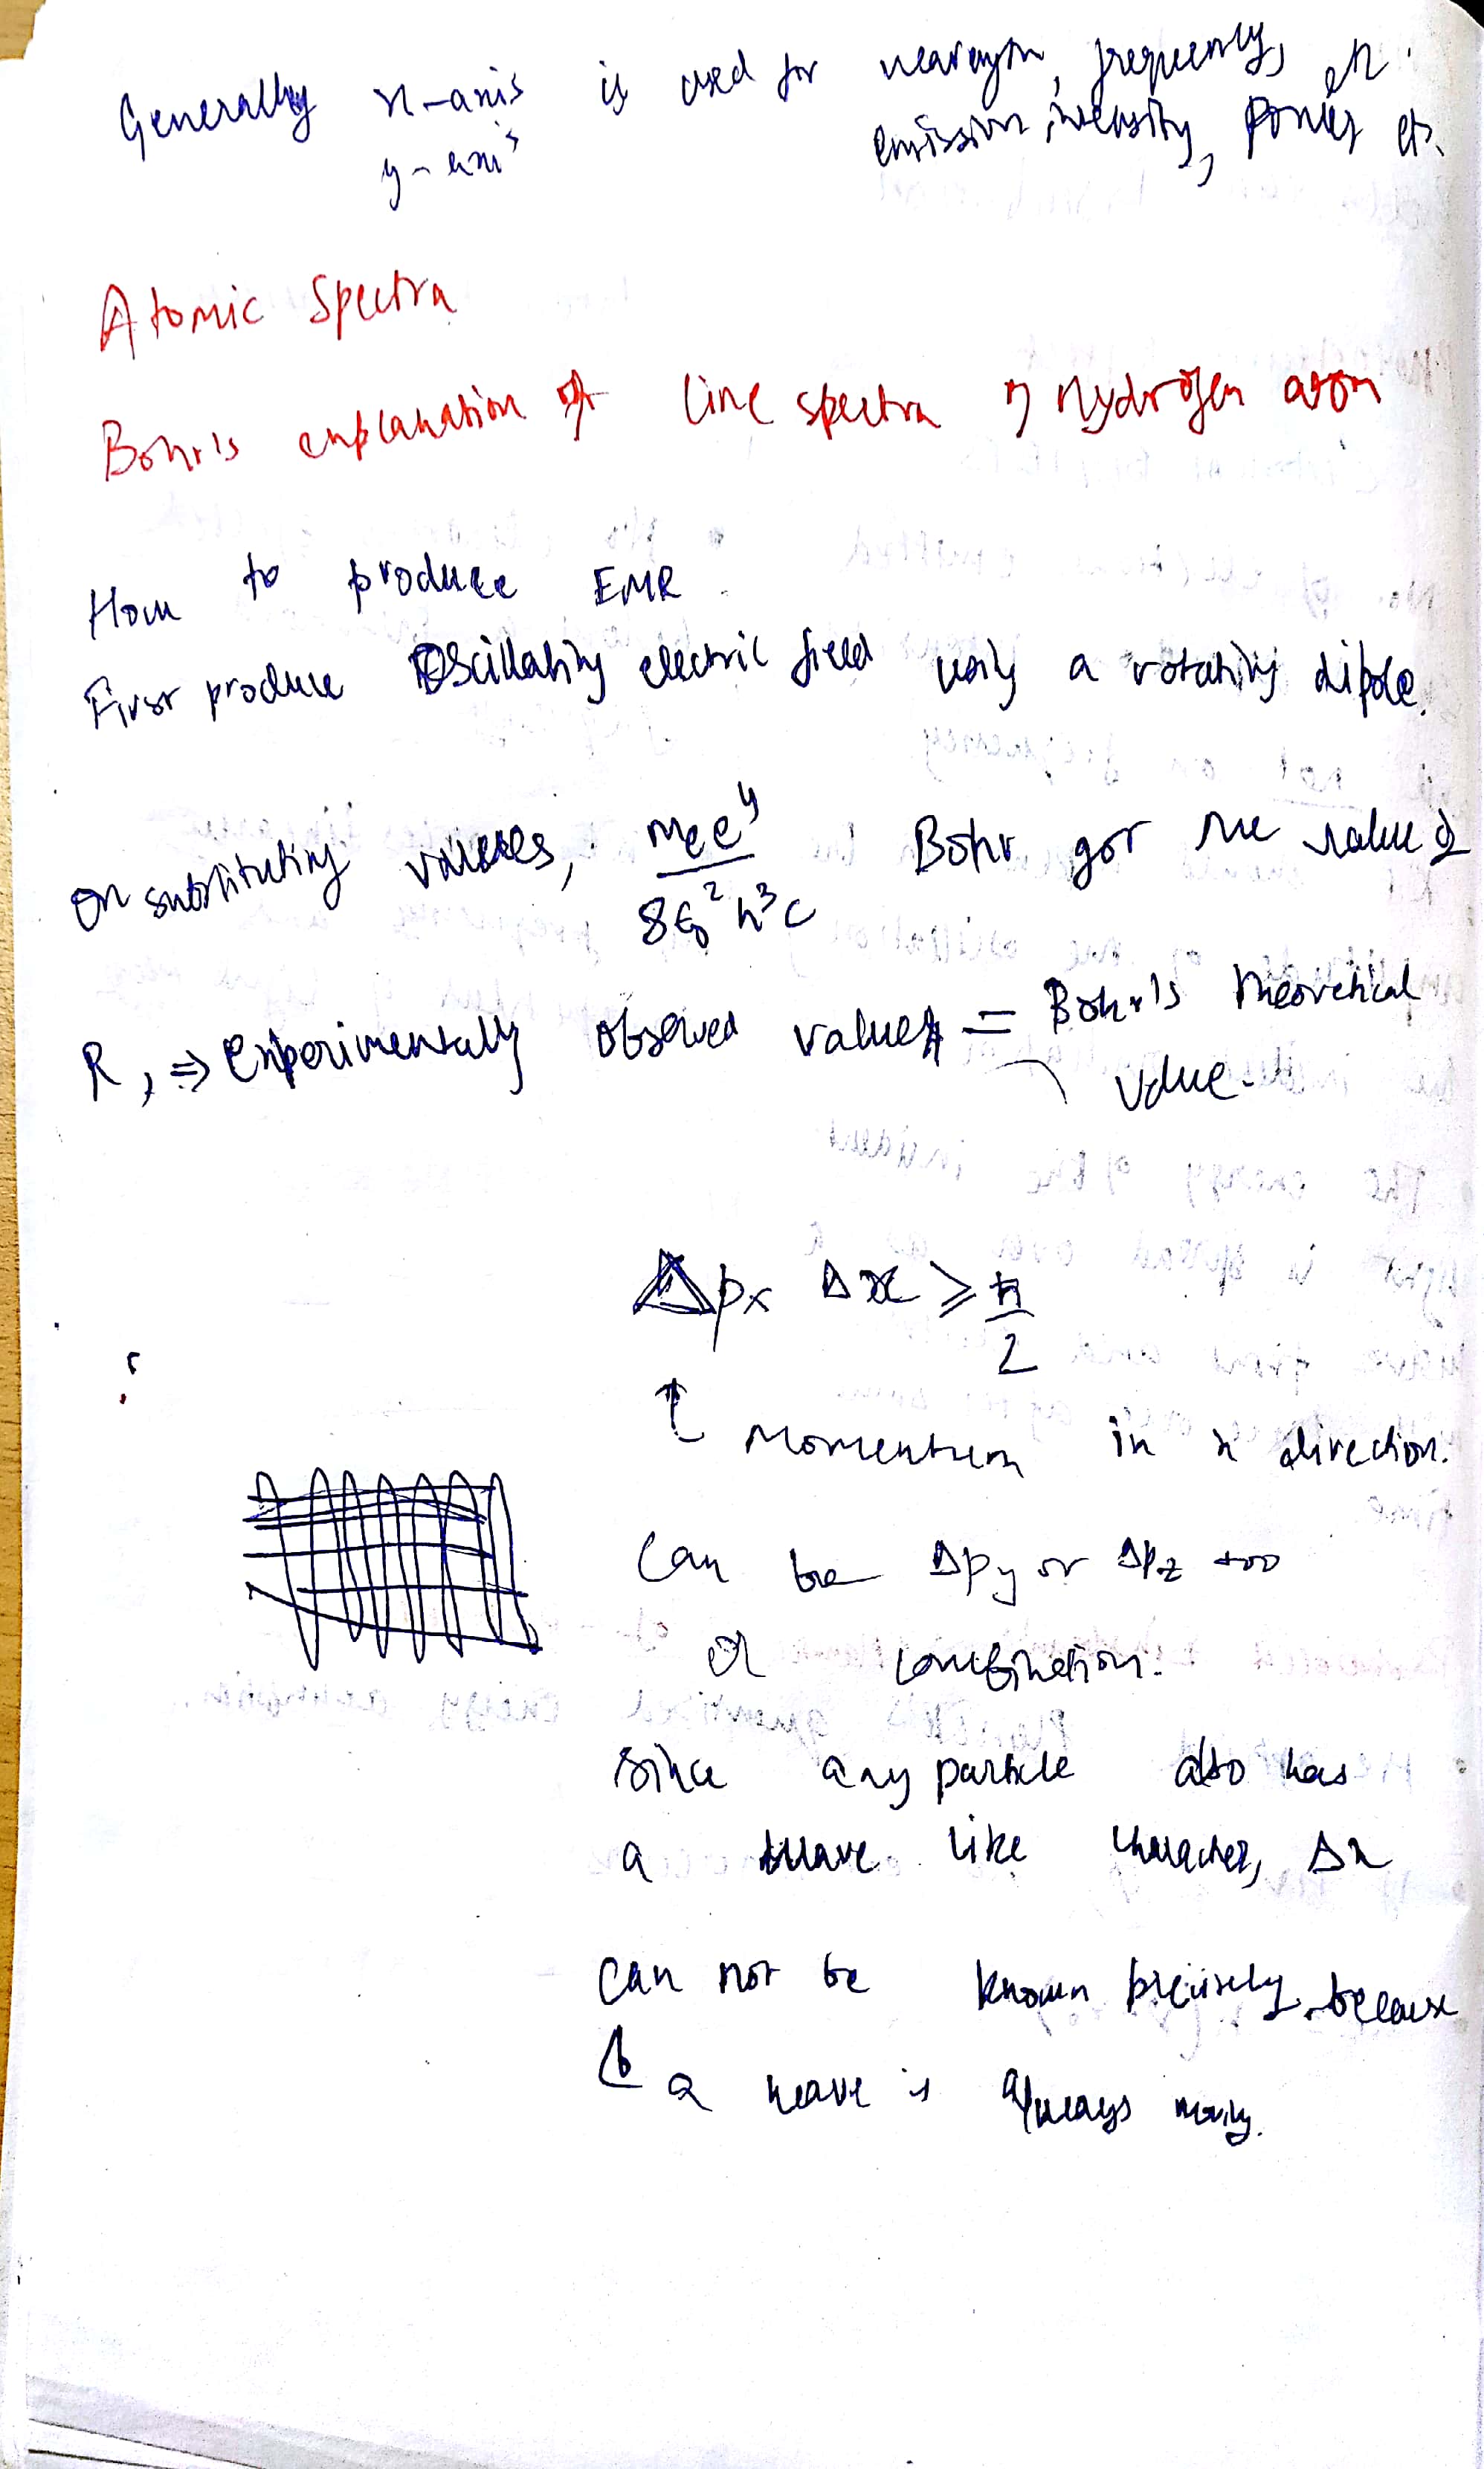 Generally x-axis is used for wavelength, frequency, etc.
y-axis emission, intensity, Power etc.
Atomic Spectra
Bohr's explanation of line spectra of Hydrogen atom
How to produce EMR
First produce Oscillating electric field using a rotating dipole.
On substituting values, mₑe⁴/8ε₀²h³c Bohr got the value of
R, ⇒ Experimentally observed value = Bohr's theoretical
value.
Δpx Δx ≥ ħ/2
↑ Momentum in x direction.
Can be Δpy or Δpz too
or combination.
Since any particle also has
a wave like character, Δx
can not be known precisely, because
↳ a wave is always moving.